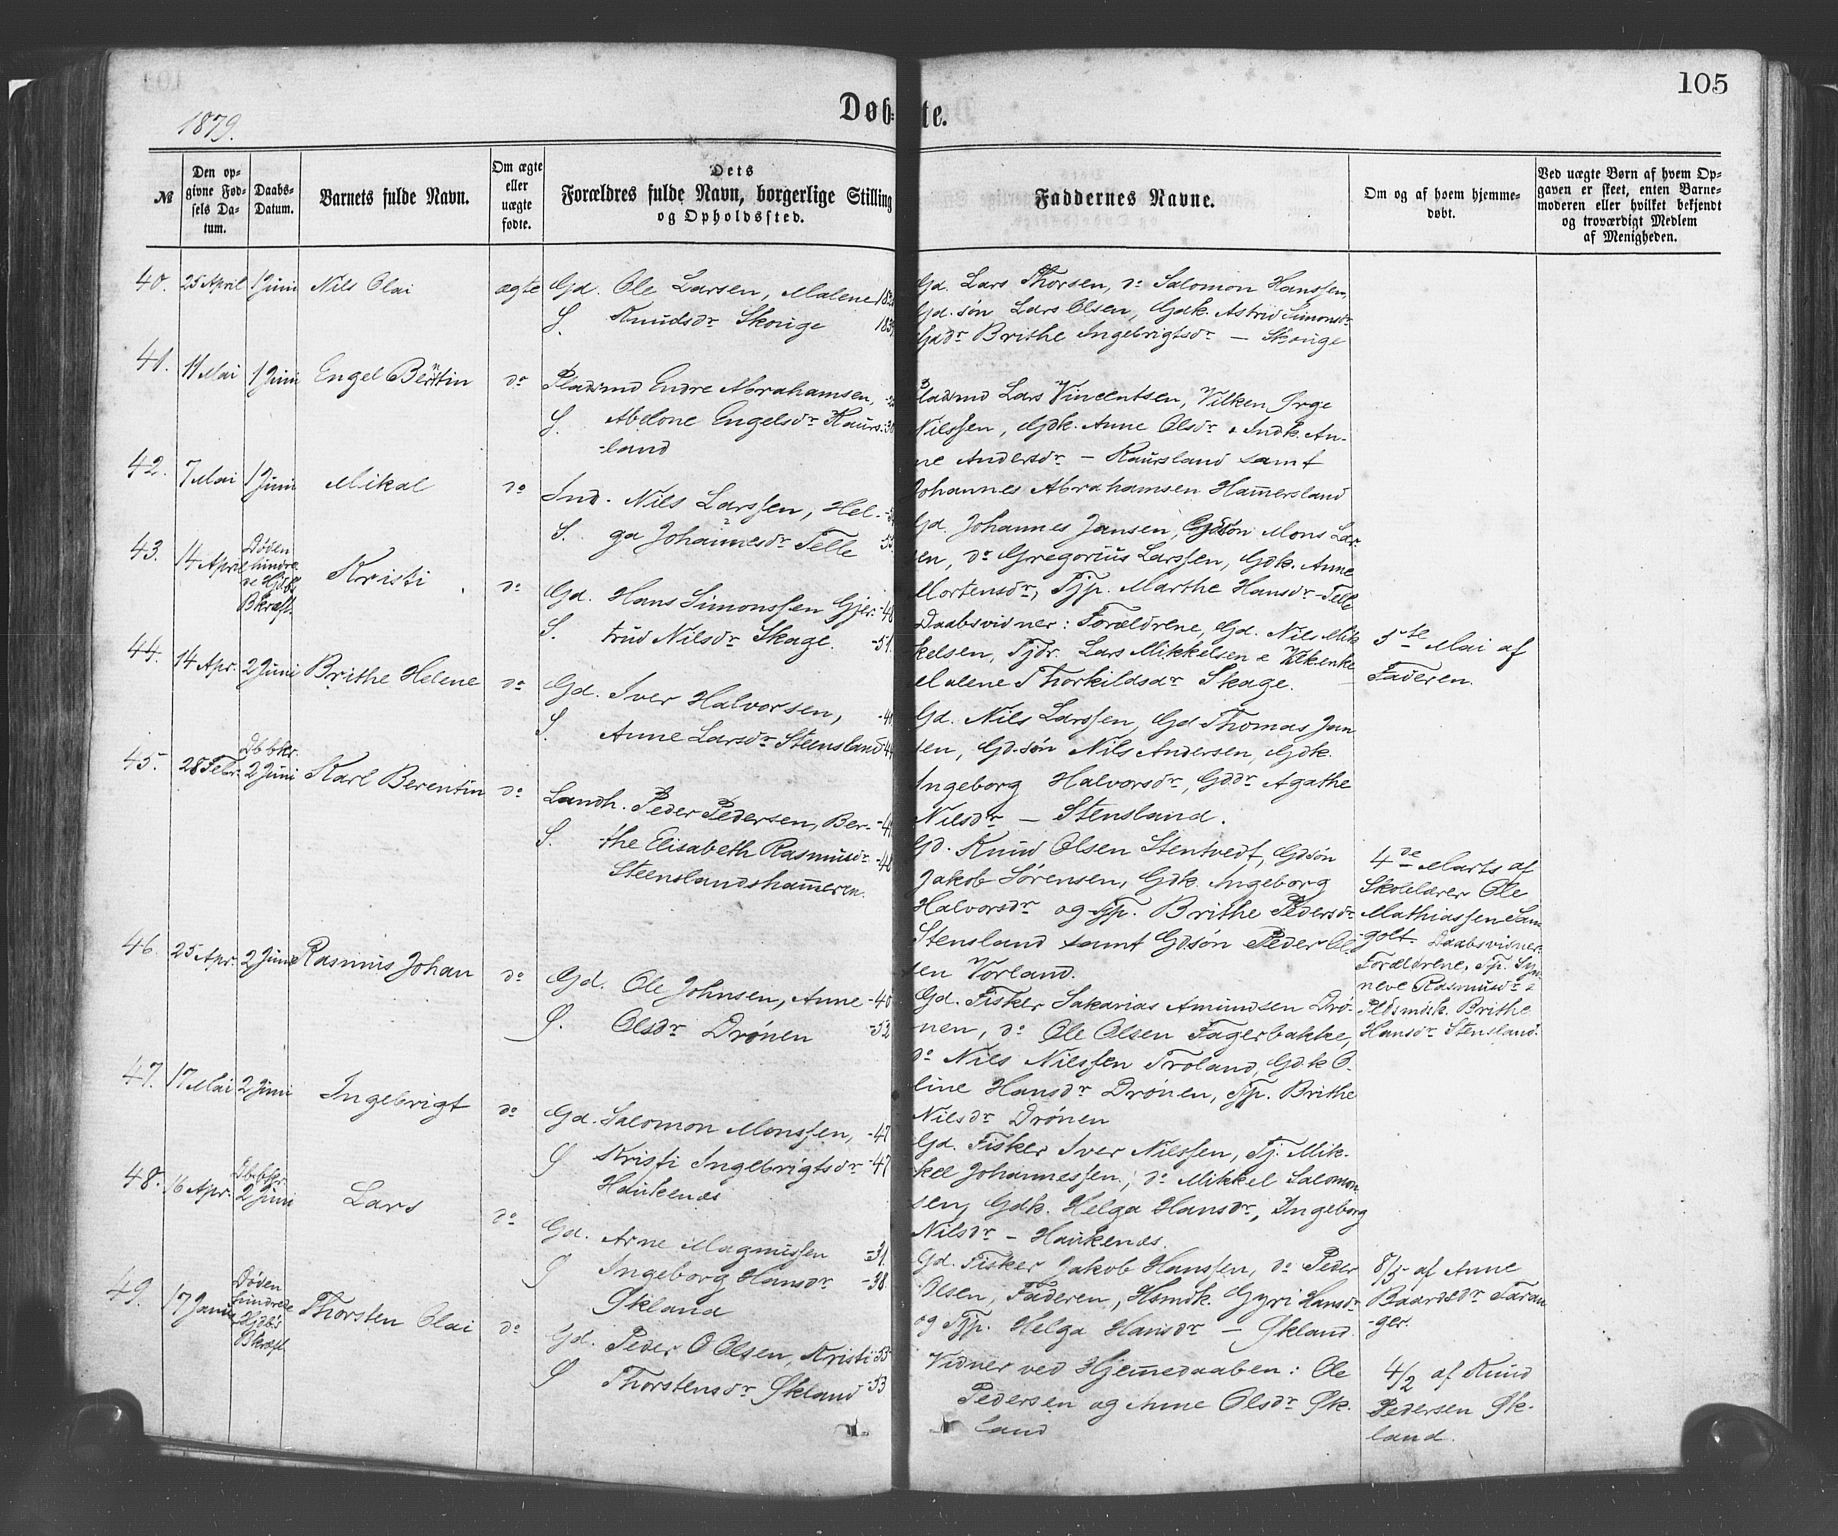 105
1879.
Døbte.
№
Den opgivne Fødsels Datum.
Daabs-Datum.
Barnets fulde Navn.
Om ægte eller uægte fødte.
Dets Forældres fulde Navn, borgerlige Stilling og Opholdssted.
Faddernes Navne.
Om og af hvem hjemmedøbt.
Ved uægte Børn af hvem Opgaven er skeet, enten Barnemoderen eller hvilket bekjendt og troværdigt Medlem af Menigheden.
40. 25 April 1 Juni Nils Olai ægte
Gd. Ole Larsen, Malene
G. Knudsdr Skouge
Gd. Lars Thorsen, do Salomon Hanssen,
Gd.søn Lars Olsen, Gdk. Astrid Simonsdr
Gddr Brithe Ingebrigtsdr — Skouge
41. 11 Mai 1 Juni Engel Berntin do
Pladsmd Endre Abrahamsen,
G. Abelone Engelsdr Kaurs-
-land
Pladsmd Lars Vincentsen, Vilken Ørge
Nilssen, Gdk. Anne Olsdr, Indk. An-
ne Andersdr — Kaursland samt
Johannes Abrahamsen Hamersland
42. 7 Mai 1 Juni Mikal do
Ind. Nils Larssen, Hel-
S. ga Johannesdr Telle -53
Gd. Johannes Jansen, Gdsøn Mons Lar-
sen, do Gregorius Larssen, Gdk. Anne
Mortensdr, Tjp. Marthe Hansdr — Telle
43. 14 April Døden hindrede Hjdbs Bkræft. Kristi do
Gd. Hans Simonssen Gjer- -48
S. trud Nilsdr Skage. -51.
Daabsvidner: Forældrene, Gd. Nils Mik-
kelsen, Tjdr. Lars Mikkelsen & Enke
Malene Thorkildsdr Skage.
5te Mai af
Faderen.
44. 14 Apr. 2 Juni Brithe Helene do
Gd. Iver Halvorsen,
S. Anne Larsdr Steensland
Gd. Nils Larssen, Gd Thomas Jan-
sen, Gd.søn Nils Andersen, Gdk.
Ingeborg Halvorsdr, Gddr Agathe
Nilsdr — Stensland.
45. 28 Febr. Db bkr. 2 Juni Karl Berentin do
Landh. Peder Pedersen, Ber-
S. the Elisabeth Rasmusdr -48
Steenslandshammeren.
Gd. Knud Olsen Stentvedt, Gdsøn
Jakob Sørensen, Gdk. Ingeborg
Halvorsdr og Tjp. Brithe Pedersdr
Stensland samt Gdsøn Peder Ol-
sen Vorland.
4de Marts af
Skolelærer Ole
Mathiassen San-
golt. Daabsvidner:
Forældrene, Tp. Syn-
neve Rasmusdr &
Pldsmdsk. Brithe
Hansdr Stensland.
46. 25 Apr. 2 Juni Rasmus Johan do
Gd. Ole Johnsen, Anne -40
G. Olsdr Drønen -52
Gd. Fisker Sakarias Amundsen Drø-
nen, do Ole Olsen Fagerbakke,
do Nils Nilssen Troland, Gdk O-
line Hansdr Drønen, Tjp. Brithe
Nilsdr Drønen
47. 17 Mai 2 Juni Ingebrigt do
Gd. Salomon Monssen, -47
G Kristi Ingebrigtsdr -47
Haukenæs
Gd. Fisker Iver Nilssen, Tj. Mik-
kel Johannessen, do Mikkel Salomon-
sen, Gdk. Helga Hansdr, Ingeborg
Nilsdr — Haukenæs.
48. 16 Apr. Db bkr. 2 Juni Lars do
Gd. Arne Magnussen -31.
G Ingeborg Hansdr -38.
Økland
Gd. Fisker Jakob Hanssen, do Peder
Olsen, Faderen, Hsmdk. Gyri Hansdr
og Tjp. Helga Hansdr — Økland
8/5 af Anne
Baardsdr Faran-
-ger.
49. 17 Januar Døden hindrede Hjdbs Bkræft. Thorsten Olai do
Gd. Peder O Olsen, Kristi -53-
G Thorstensdr Økland -53
Vidner ved Hjemedaaben: Ole
Pedersen og Anne Olsdr Øk-
land
4/2 af Knud
Pedersen Øk-
land.